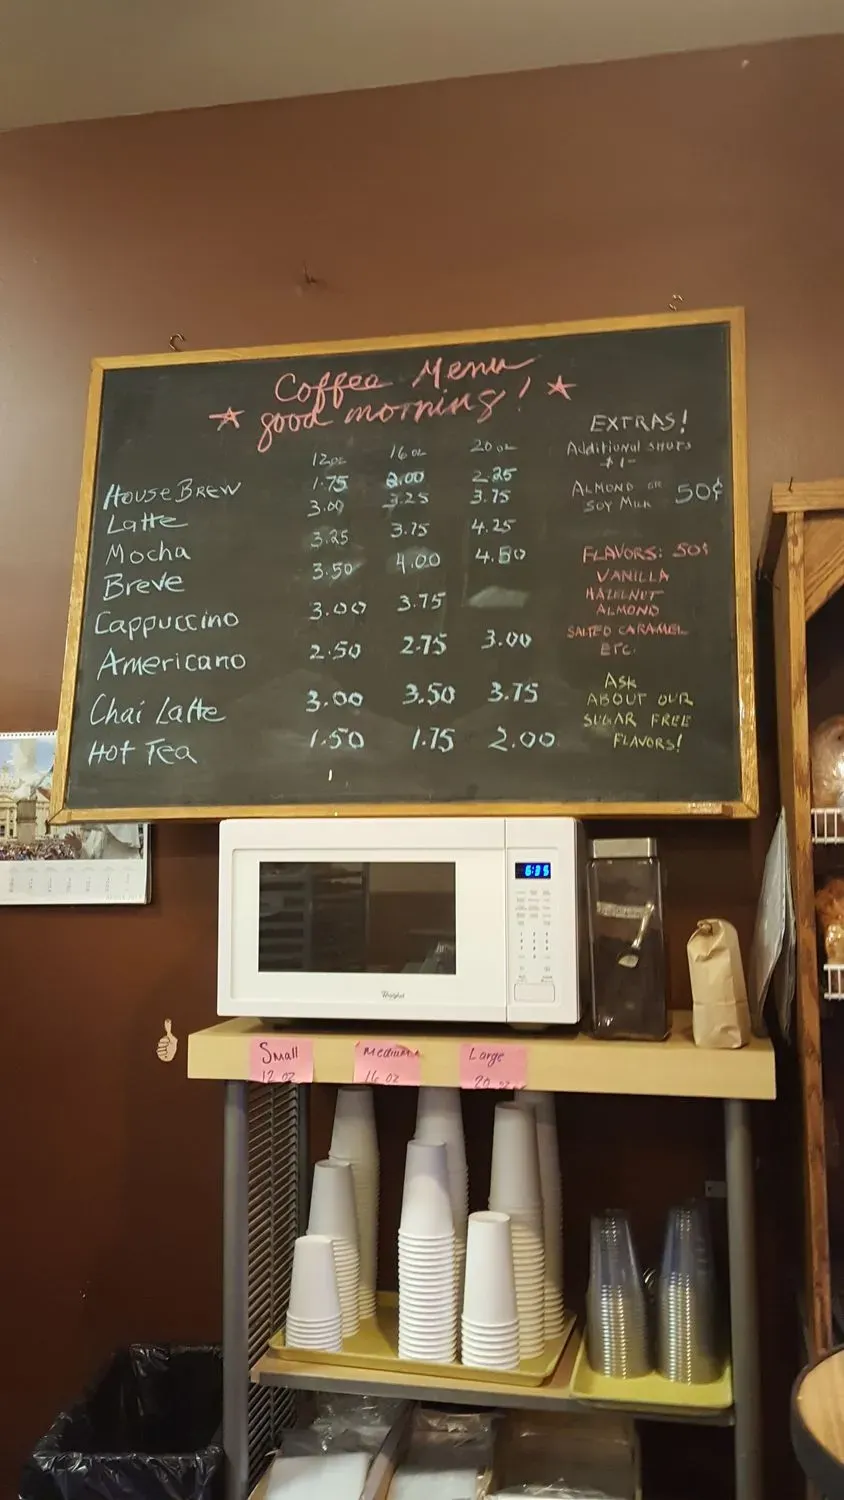 Coffee Menu
good morning!
12oz 16oz 20oz
House Brew 1.75 2.00 2.25
Latte 3.00 3.25 3.75
Mocha 3.25 3.75 4.25
Breve 3.50 4.00 4.50
Cappuccino 3.00 3.75
Americano 2.50 2.75 3.00
Chai Latte 3.00 3.50 3.75
Hot Tea 1.50 1.75 2.00
EXTRAS!
Additional shots
$1-
ALMOND or
SOY MILK 50¢
FLAVORS: 50¢
VANILLA
HAZELNUT
ALMOND
SALTED CARAMEL
ETC.
ASK
ABOUT OUR
SUGAR FREE
FLAVORS!
6:35
Whirlpool
Small
12 oz
Medium
16 oz
Large
20 oz